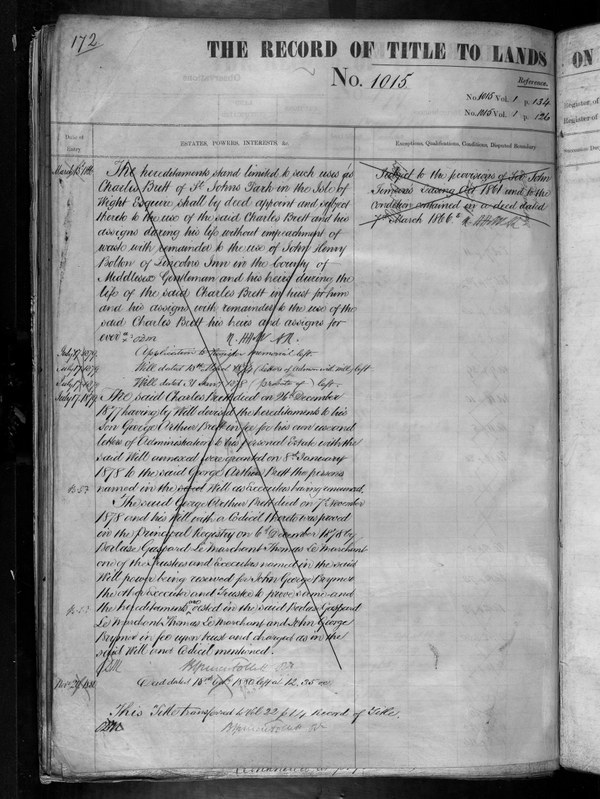 172
THE RECORD OF TITLE TO LANDS
ON
No. 1015
Reference.
No. 1015 Vol. 1 p. 134
No. 1015 Vol. 1 p. 126
Register of
Register of
Date of Entry
ESTATES, POWERS, INTERESTS, &c.
Exceptions, Qualifications, Conditions, Disputed Boundary
The hereditaments stand limited to such uses as
Charles Brett of St Johns Park in the Isle of
Wight Esquire shall by deed appoint and subject
thereto to the use of the said Charles Brett and his
assigns during his life without impeachment of
waste with remainder to the use of John Henry
Bolton of Lincolns Inn in the County of
Middlesex Gentleman and his heirs during the
life of the said Charles Brett in trust for him
and his assigns with remainder to the use of the
said Charles Brett his heirs and assigns for
ever
Subject to the provisions of Sir John
Simeons Act 1861 and to the
Condition contained in a deed dated
7th March 1866
July 17 1879
Application to Register memorial left
July 17 1879
Will dated 1873 (Letters of Admon with will) left
July 17 1879
Will dated 31 Jany 1878 (probate of) left
July 17 1879
The said Charles Brett died on 26th December
1877 having by Will devised the hereditaments to his
Son George Arthur Brett in fee for his own use and
letters of Administration to his personal Estate with the
said Will annexed were granted on 8th January
1878 to the said George Arthur Brett the persons
named in the said Will as Executors having renounced.
The said George Arthur Brett died on 7th November
1878 and his Will with a Codicil thereto was proved
in the Principal Registry on 6th December 1878 by
Gaspard Le Marchant Thomas Le Marchant
one of the Trustees and Executors named in the said
Will power being reserved for John George Brymer
the other Executor and Trustee to prove same and
the hereditaments are vested in the said Gaspard
Le Marchant Thomas Le Marchant and John George
Brymer in fee upon trust and charged as in the
said Will and Codicil mentioned.
Deed dated 1880 left at 12.35
This Title transferred to Vol. 22 p 14 Record of Titles.